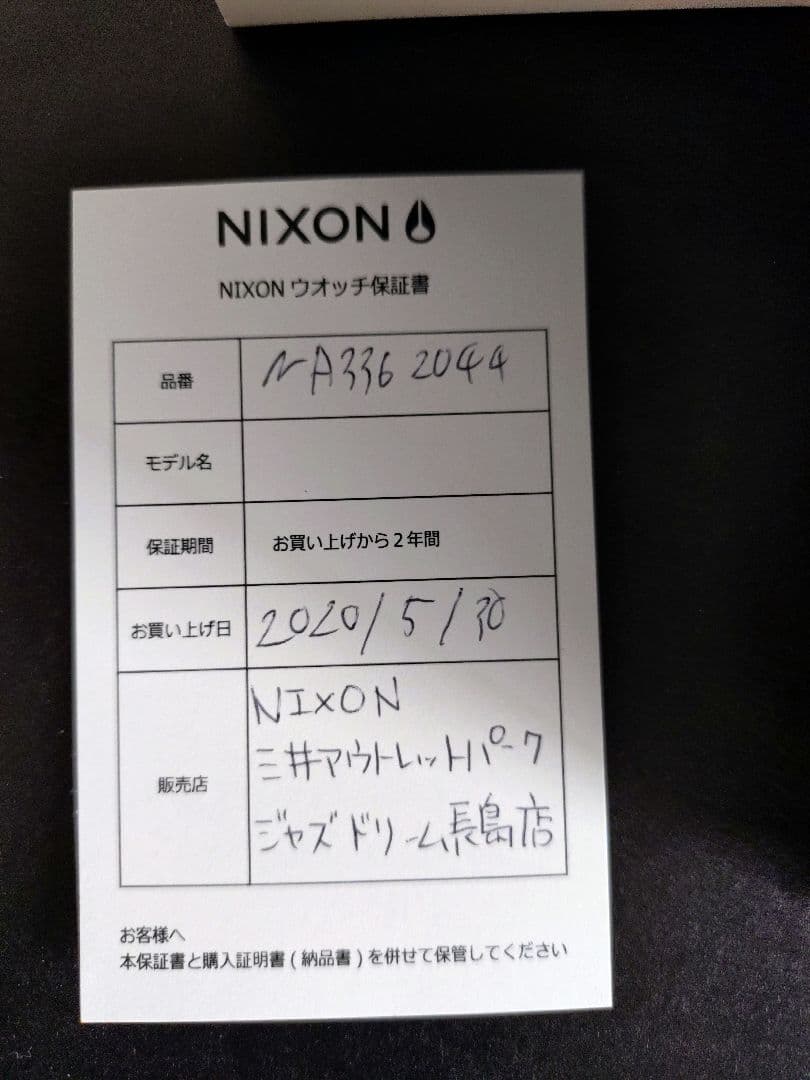 NIXON
NIXON ウオッチ保証書
品番 NA336 2044
モデル名
保証期間 お買い上げから2年間
お買い上げ日 2020/5/30
販売店
NIXON
三井アウトレットパーク
ジャズドリーム長島店
お客様へ
本保証書と購入証明書(納品書)を併せて保管してください